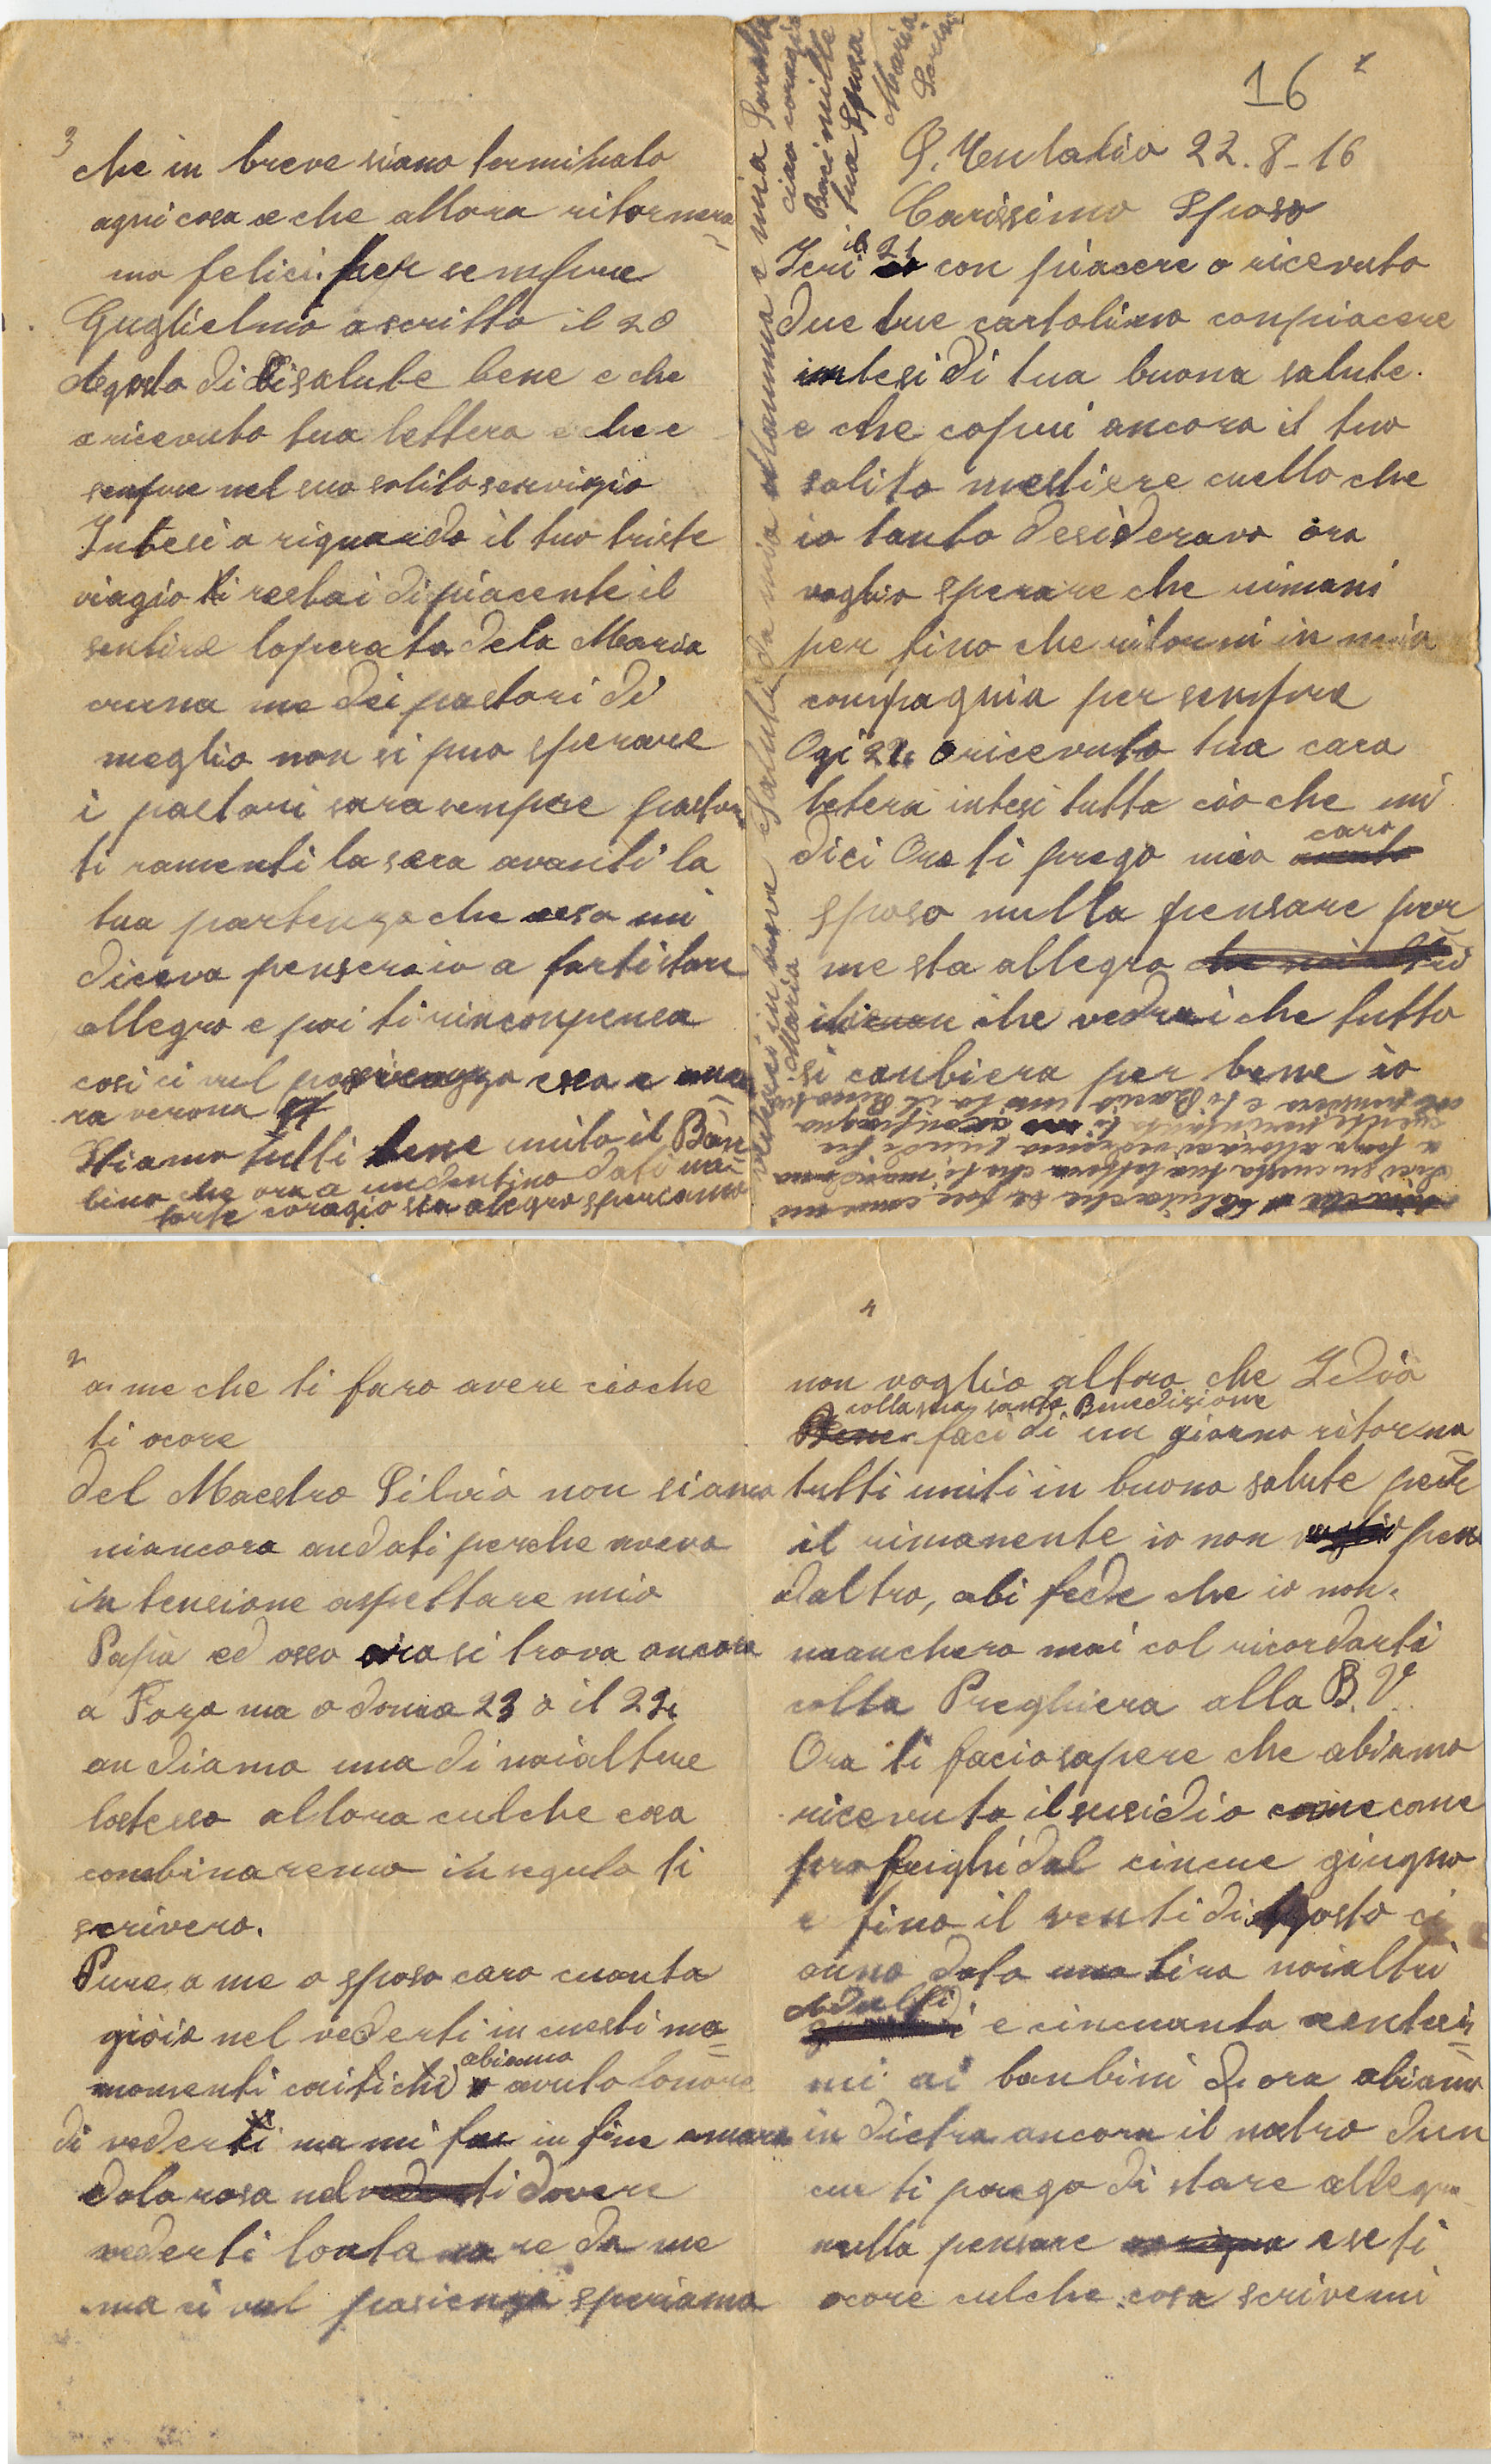 16
S. Eulalia 22.8-16
Carissimo Sposo
Ieri il 21 con piacere o ricevuto
due tue cartoline conpiacere
intesi di tua buona salute.
e che copri ancora il tuo
solito mestiere cuello che
io tanto desideravo ora
voglio sperare che rimani
per fino che ritorni in mia
compagnia per sempre
Ogi 22 o ricevuto tua cara
letera intesi tutto ciò che mi
dici Ora ti prego mio caro
sposo nulla pensare per
me sta allegro
che vedrai che tutto
si canbiera per bene io
2
a me che ti faro avere cioche
ti ocore
del Maestro Silvio non siamo
niancora andati perche aveva
intensione aspettare mio
Papà ed esso ora si trova ancora
a Foza ma o doma 23 o il 24
andiamo una di noialtre
lostesso allora culche cosa
combinaremo in seguto ti
scrivero.
Pure a me o sposo caro cuanta
gioia nel vederti in cuesti mo=
momenti critichi abiamo avuto lonore
di vederti ma mi fu in fine amara
dolorosa nel dovere
vederti lontanare da me
ma ci vul pasienza speriamo
3
che in breve siano terminato
ogni cosa e che allora ritornera=
mo felici per sempre
Guglielmo a scritto il 20
Agosto di salute bene e che
a ricevuto tua lettera e che e
senpre nel suo solito servigio
Intesi a riguardo il tuo triste
viagio ti restai dipiacente il
sentire loperato dela Maria
cruna me dei pastori di
meglio non si puo sperare
i pastori sara sempre pastori
ti ramenti la sera avanti la
tua partenza che esa mi
diceva penseroio a farti stare
allegro e poi ti rinconpensa
cosi ci vul pasienza esa e anco=
ra verona
Stiamo tutti bene unito il Ban=
bino che ora a undentino dati ma=
forte coragio sta alegro speriamo
4
non voglio altro che Idio
colla sua santa Benedisione
faci di un giorno ritorna=
tutti uniti in buona salute per
il rimanente io non pen
daltro, abi fede che io non
manchero mai col ricordarti
colla Preghiera alla B.V.
Ora ti facio sapere che abiamo
ricevuto il susidio come
profughi dal cincue giugno
e fino il venti di Agosto ci
anno dato una lira noialtri
Adulti e cincuanta centesi=
mi ai banbini e ora abiamo
in dietro ancora il nostro dun
cue ti prego di stare allegro
nulla pensare e se ti
ocore culche cosa scrivemi
vederci in breve Saluti da mia Mamma e mia Sorella
Maria
ciao coragio
Baci mille
tua Sposa
Maria